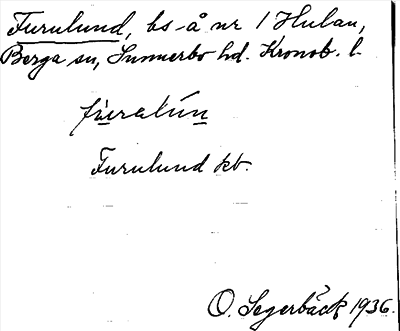 Furulund, bs å nr 1 Hulan,
Berga sn, Sunnerbo hd. Kronob. l.
Furulund kb.
O. Segerbäck 1936.